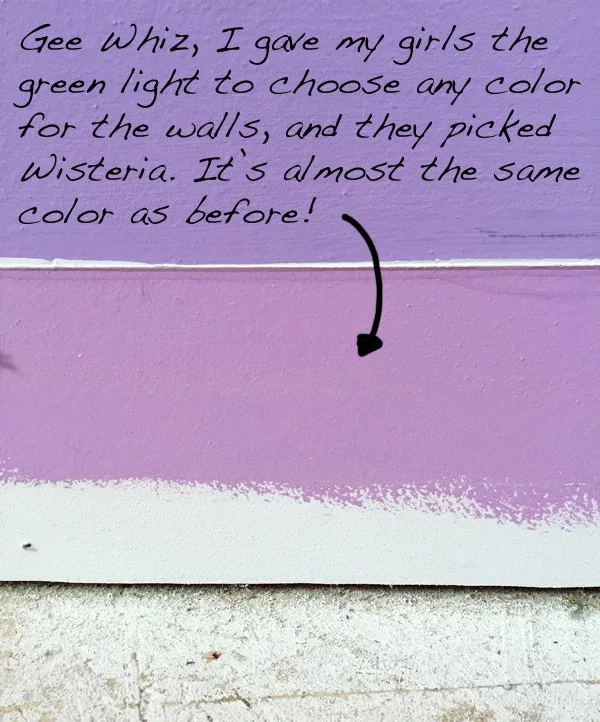 Gee Whiz, I gave my girls the
green light to choose any color
for the walls, and they picked
Wisteria. It's almost the same
color as before!